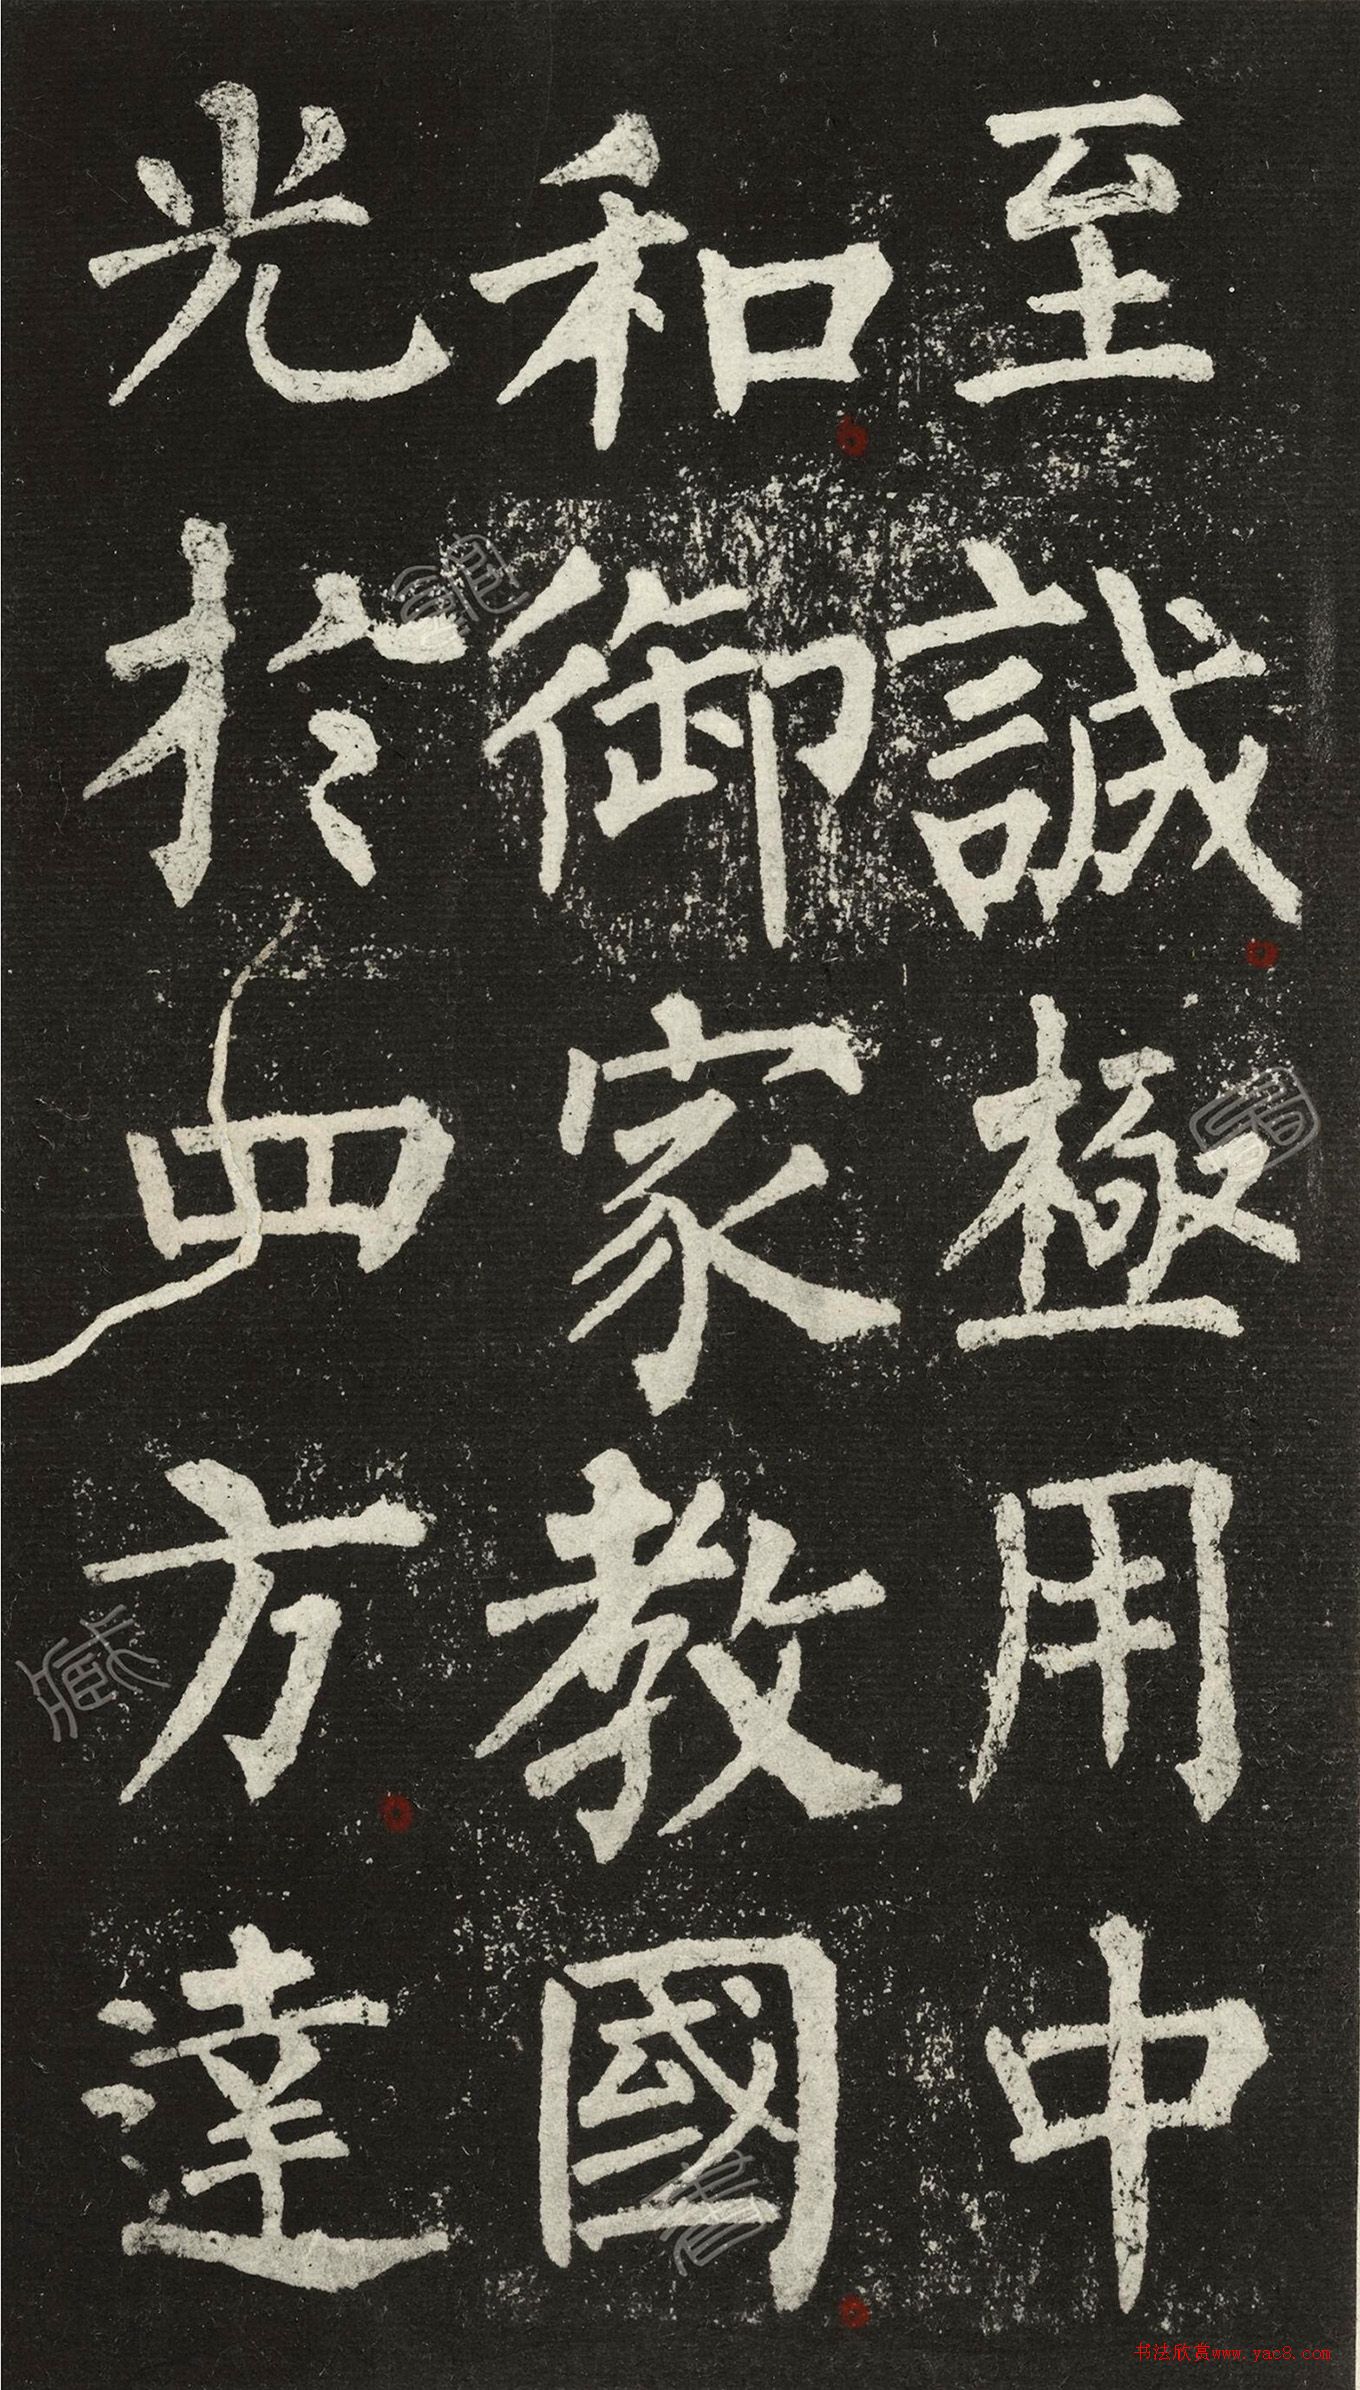 至誠極用中
和御家教國
光於四方達
书法欣赏www.yac8.com